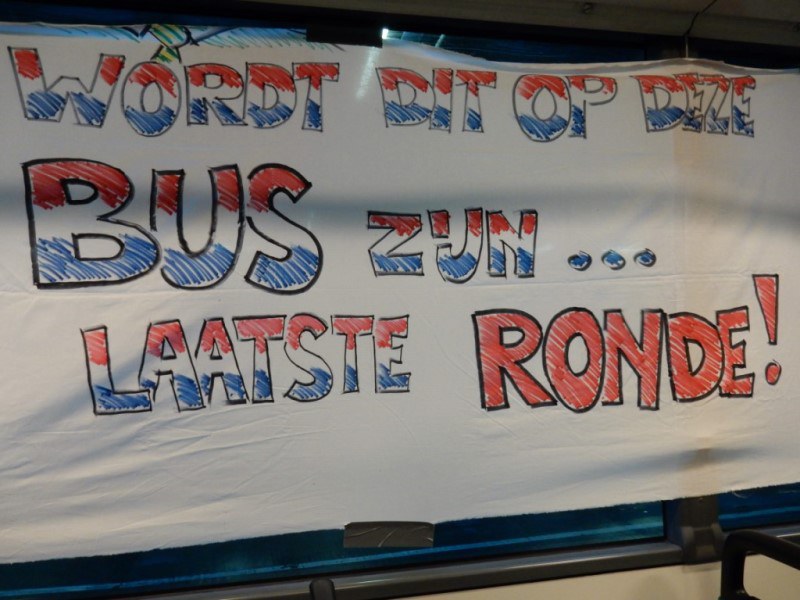 WORDT DIT OP DEZE
BUS ZIJN ...
LAATSTE RONDE!